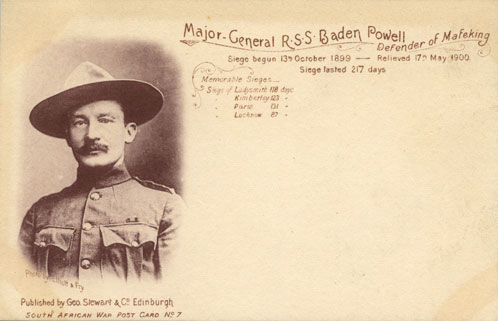 Major-General R.S.S. Baden Powell
Defender of Mafeking
Siege begun 13th October 1899 — Relieved 17th May 1900
Siege lasted 217 days
Memorable Sieges
Siege of Ladysmith 118 days
" Kimberley 123 "
" Paris 131 "
" Lucknow 87 "
Elliott & Fry
Published by Geo. Stewart & Co. Edinburgh
South African War Post Card No 7